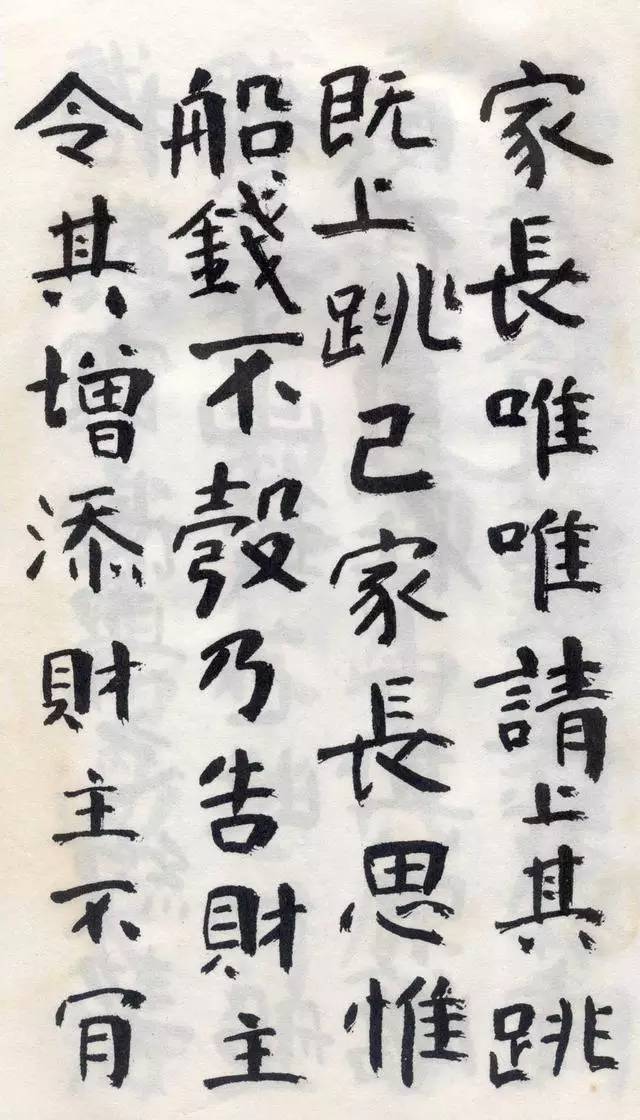 家長唯唯請上其跳
既上跳己家長思惟
船錢不彀乃告財主
令其增添財主不肎